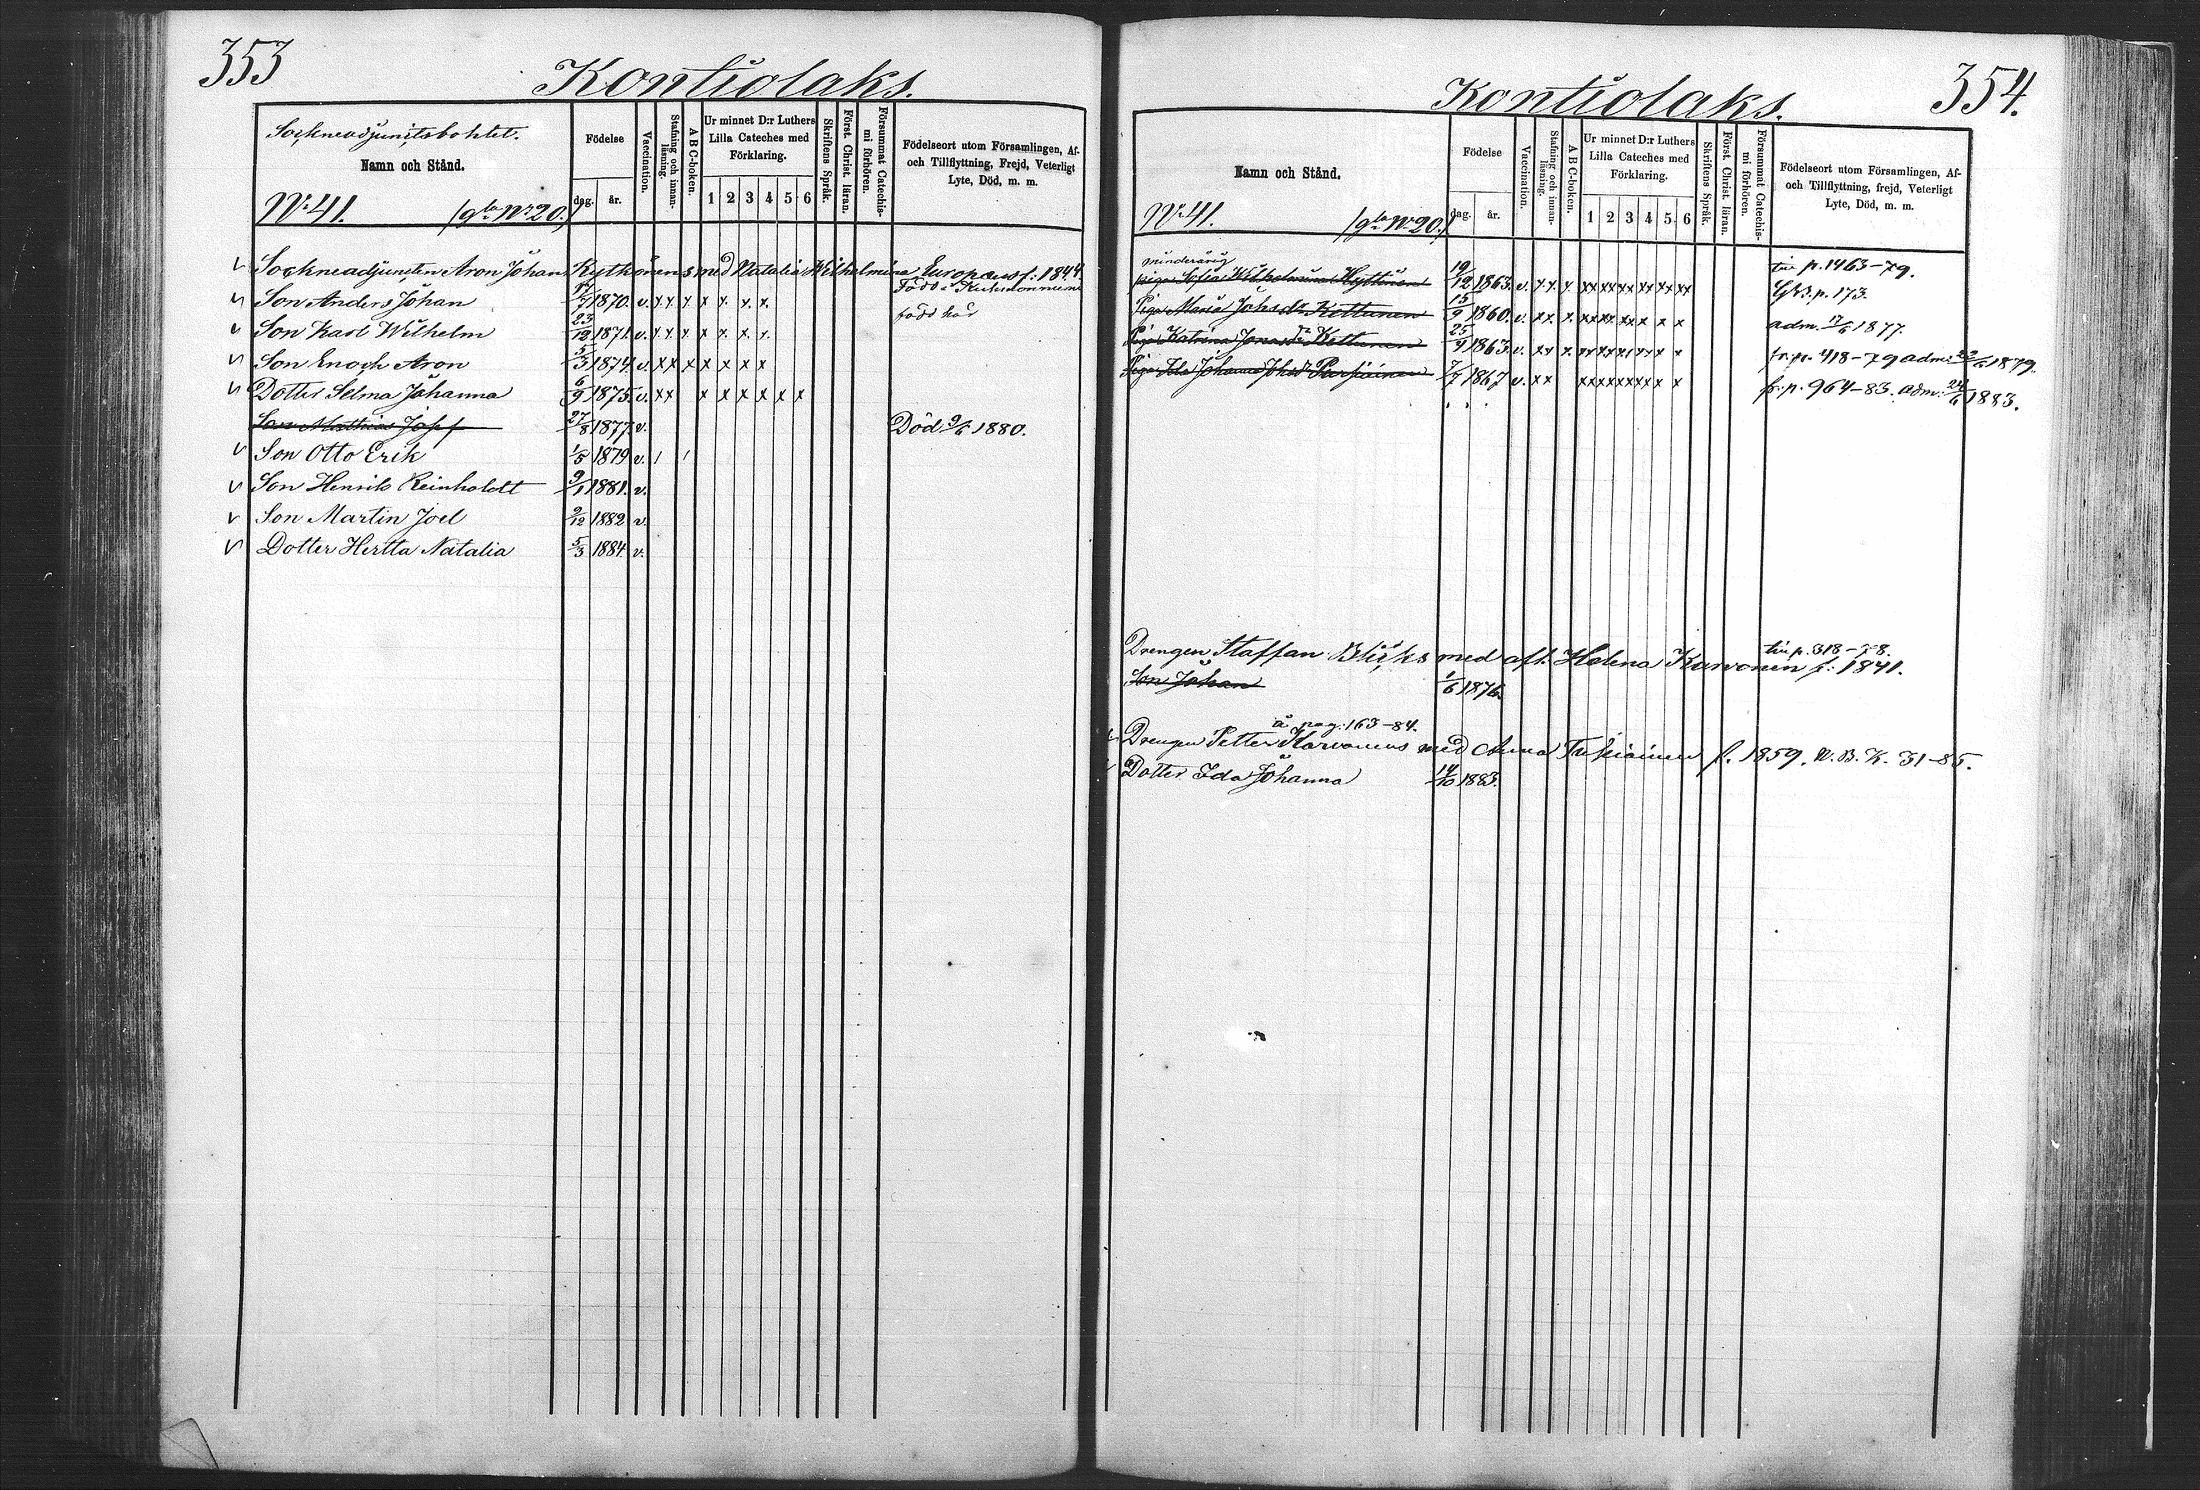 353
Kontiolaks.
Sockneadjunctsbohlet.
Namn och Stånd.
Nr 41. (gla Nr 20.)
Födelse
dag. år.
Vaccination.
Stafning och innanläsning.
A B C-boken.
Ur minnet D:r Luthers Lilla Cateches med Förklaring.
1 2 3 4 5 6
Skriftens Språk.
Först. Christ. läran.
Försummat Catechismi förhören.
Födelseort utom Församlingen, Af- och Tillflyttning, Frejd, Veterligt Lyte, Död, m. m.
Sockneadjuncten Aron Johan Kytkönens med Natalia Wilhelmina Europaeus f: 1844
Son Anders Johan 1870. v. x x x x x x x Född i Kuhmoniemi
Son Karl Wilhelm 23/12 1871. v. x x x x x x x född här
Son Enoch Aron 5/3 1874. v. x x x x x x
Dotter Selma Johanna 6/9 1875. v. x x x x x x x x
Son Mathias Josef 27/8 1877. v. Död 9/6 1880.
Son Otto Erik 1/5 1879 v. / /
Son Henrik Reinholdt 9/1 1881. v.
Son Martin Joel 9/12 1882 v.
Dotter Hertta Natalia 5/3 1884. v.
354.
Kontiolaks.
Namn och Stånd.
Nr 41. (gla Nr 20.)
Födelse
dag. år.
Vaccination.
Stafning och innanläsning.
A B C-boken.
Ur minnet D:r Luthers Lilla Cateches med Förklaring.
1 2 3 4 5 6
Skriftens Språk.
Först. Christ. läran.
Försummat Catechismi förhören.
Födelseort utom Församlingen, Af- och Tillflyttning, frejd, Veterligt Lyte, Död, m. m.
minderårig
piga Sofia Wilhelmina Hyttinen 19/12 1863. v. x x x xx xx xx xx xx xx till p. 1463-79.
Piga Maria Johsdr Kettunen 15/9 1860. v. xx x. xx xx xx x x x p. 173.
Piga Katrina Jonasdr Kettunen 25/4 1863. v. xx x xx xx xx xx x adm. 17/6 1877.
Piga Ida Johanna Johsdr Parsiainen 7/7 1867 v. x x xx xx xx xx x x fr. p. 418-79 adm: 22/6 1879.
fr. p. 964-83. adm: 24/6 1883.
till p. 318-78.
Drengen Staffan Blicks med afl. Helena Karvonen f: 1841.
Son Johan 1/6 1876.
å pag: 163-84.
Drengen Petter Karvonens med Anna Turpiainen f. 1859. N. B. K. 31-85.
Dotter Ida Johanna 14/10 1883.